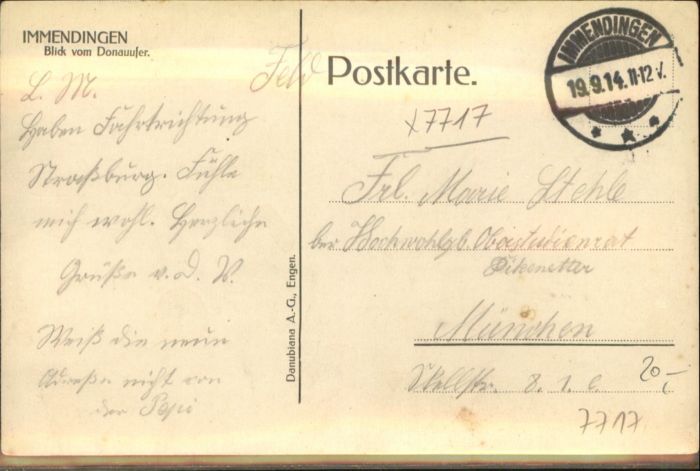 IMMENDINGEN
Blick vom Donauufer.
L. M.
Haben Fahrtrichtung
Straßburg. Fühle
mich wohl. Herzliche
Grüße v. d. V.
Weiß die neue
Adresse nicht von
der Pepi
Danubiana A.-G., Engen.
Feld Postkarte.
IMMENDINGEN
19.9.14.11-12 V.
x7717
Frl. Marie Stehle
bei Hochwohlgb. Oberstudienrat
München
8. 1. l.
20,-
7717